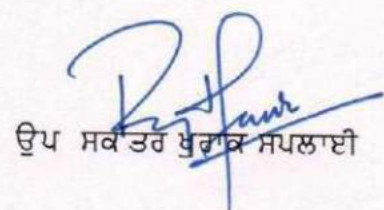 ਉਪ ਸਕੱਤਰ ਖੁਰਾਕ ਸਪਲਾਈ